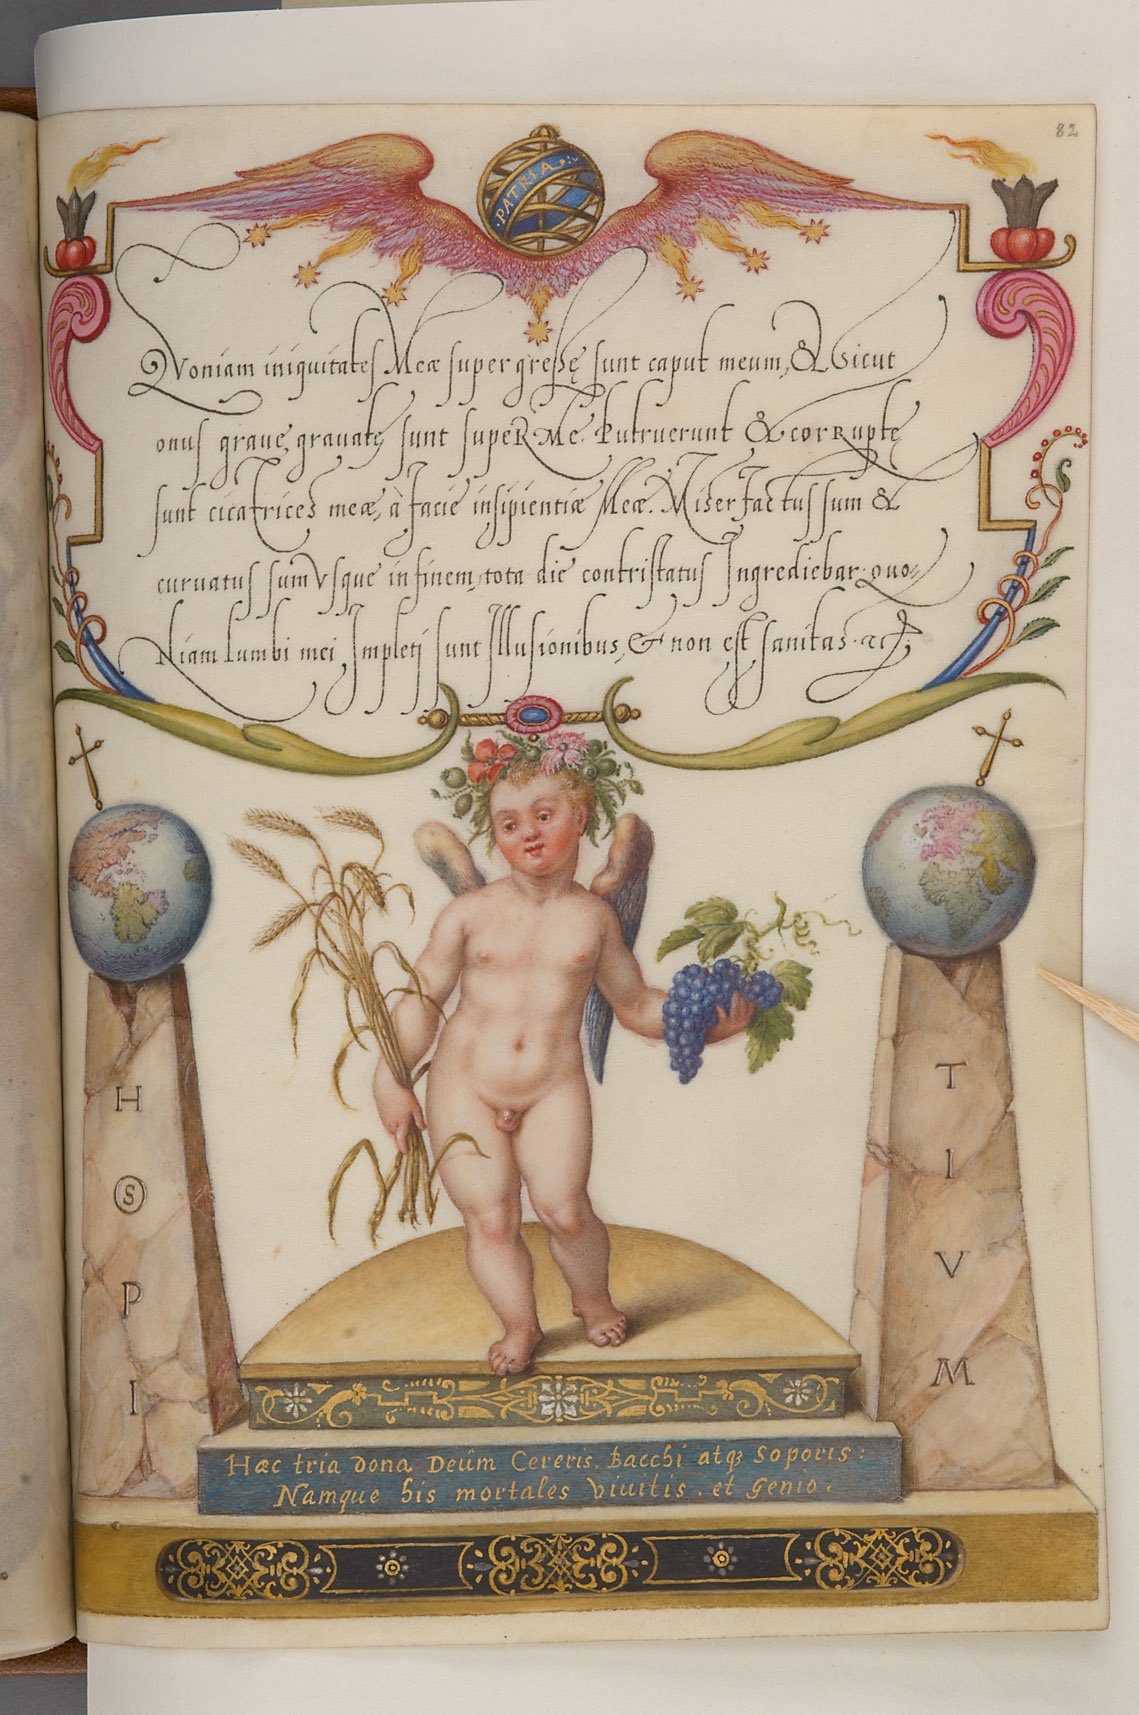 82
·PATRIA·
Quoniam iniquitates Meæ supergressę sunt caput meum, & Sicut
onus graue, grauatę sunt supeR Me. Putruerunt & corRuptę
sunt cicatrices meæ, à facie insipientiæ Meæ. Miser factus sum &
curuatus sum Vsque in finem, tota die contristatus Ingrediebar. quo-
Niam lumbi mei Impleti sunt Illusionibus, & non est sanitas.
HOSPI
TIVM
Hæc tria dona Deûm Cereris. Bacchi atq3 Soporis:
Namque his mortales Viuitis. et Genio.